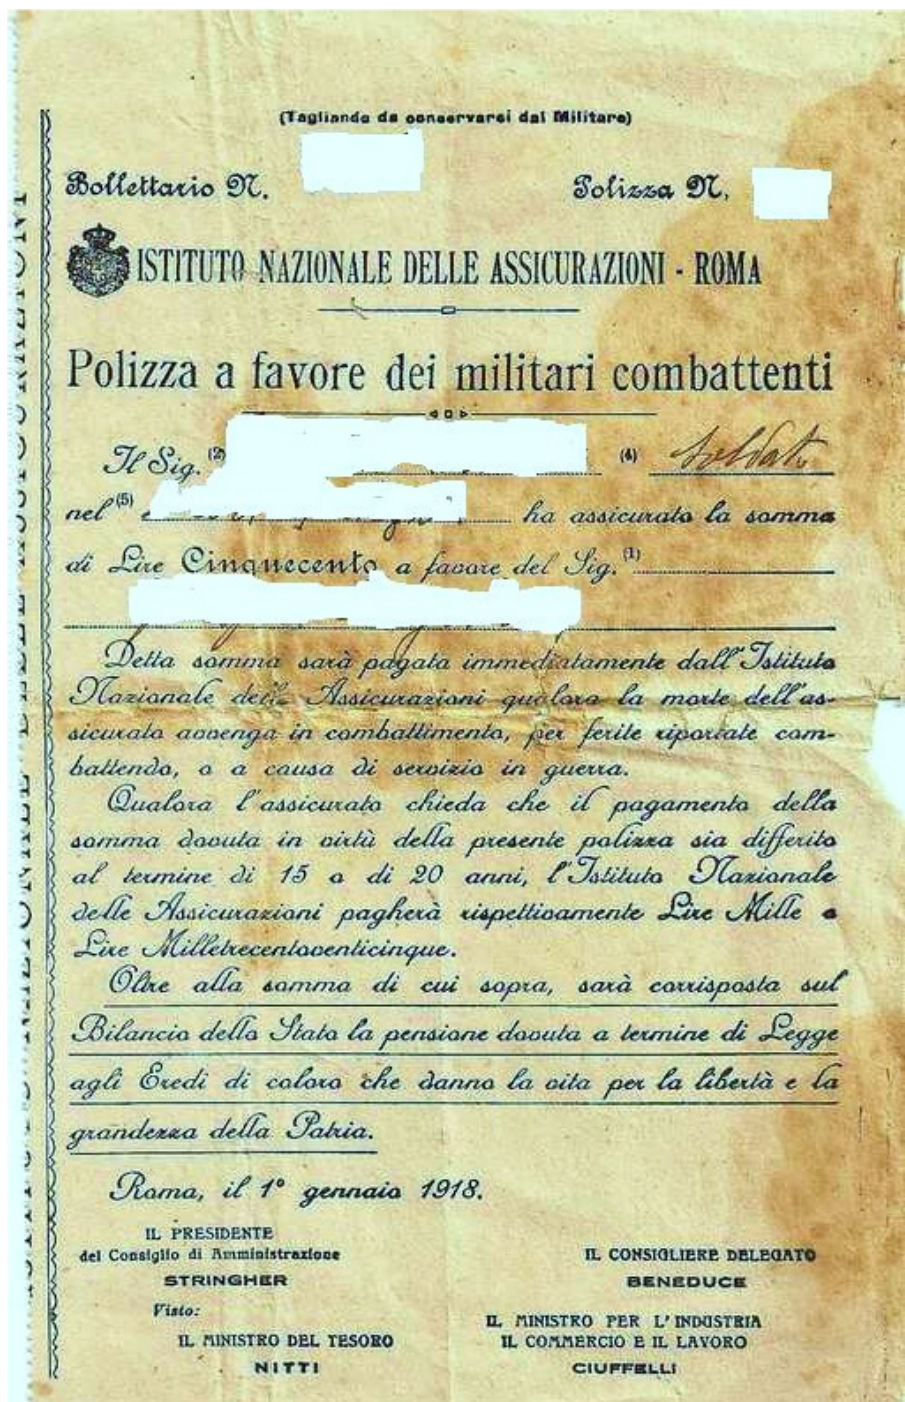 (Tagliando da conservarsi dal Militare)
Bollettario N. Polizza N.
ISTITUTO NAZIONALE DELLE ASSICURAZIONI - ROMA
Polizza a favore dei militari combattenti
Il Sig. (2) (4) Soldato
nel (5) ha assicurato la somma
di Lire Cinquecento a favore del Sig. (1)
Detta somma sarà pagata immediatamente dall'Istituto
Nazionale delle Assicurazioni qualora la morte dell'as-
sicurato avvenga in combattimento, per ferite riportate com-
battendo, o a causa di servizio in guerra.
Qualora l'assicurato chieda che il pagamento della
somma dovuta in virtù della presente polizza sia differito
al termine di 15 o di 20 anni, l'Istituto Nazionale
delle Assicurazioni pagherà rispettivamente Lire Mille o
Lire Milletrecentoventicinque.
Oltre alla somma di cui sopra, sarà corrisposta sul
Bilancio dello Stato la pensione dovuta a termine di Legge
agli Eredi di coloro che danno la vita per la libertà e la
grandezza della Patria.
Roma, il 1° gennaio 1918.
IL PRESIDENTE
del Consiglio di Amministrazione
STRINGHER
IL CONSIGLIERE DELEGATO
BENEDUCE
Visto:
IL MINISTRO DEL TESORO
NITTI
IL MINISTRO PER L'INDUSTRIA
IL COMMERCIO E IL LAVORO
CIUFFELLI